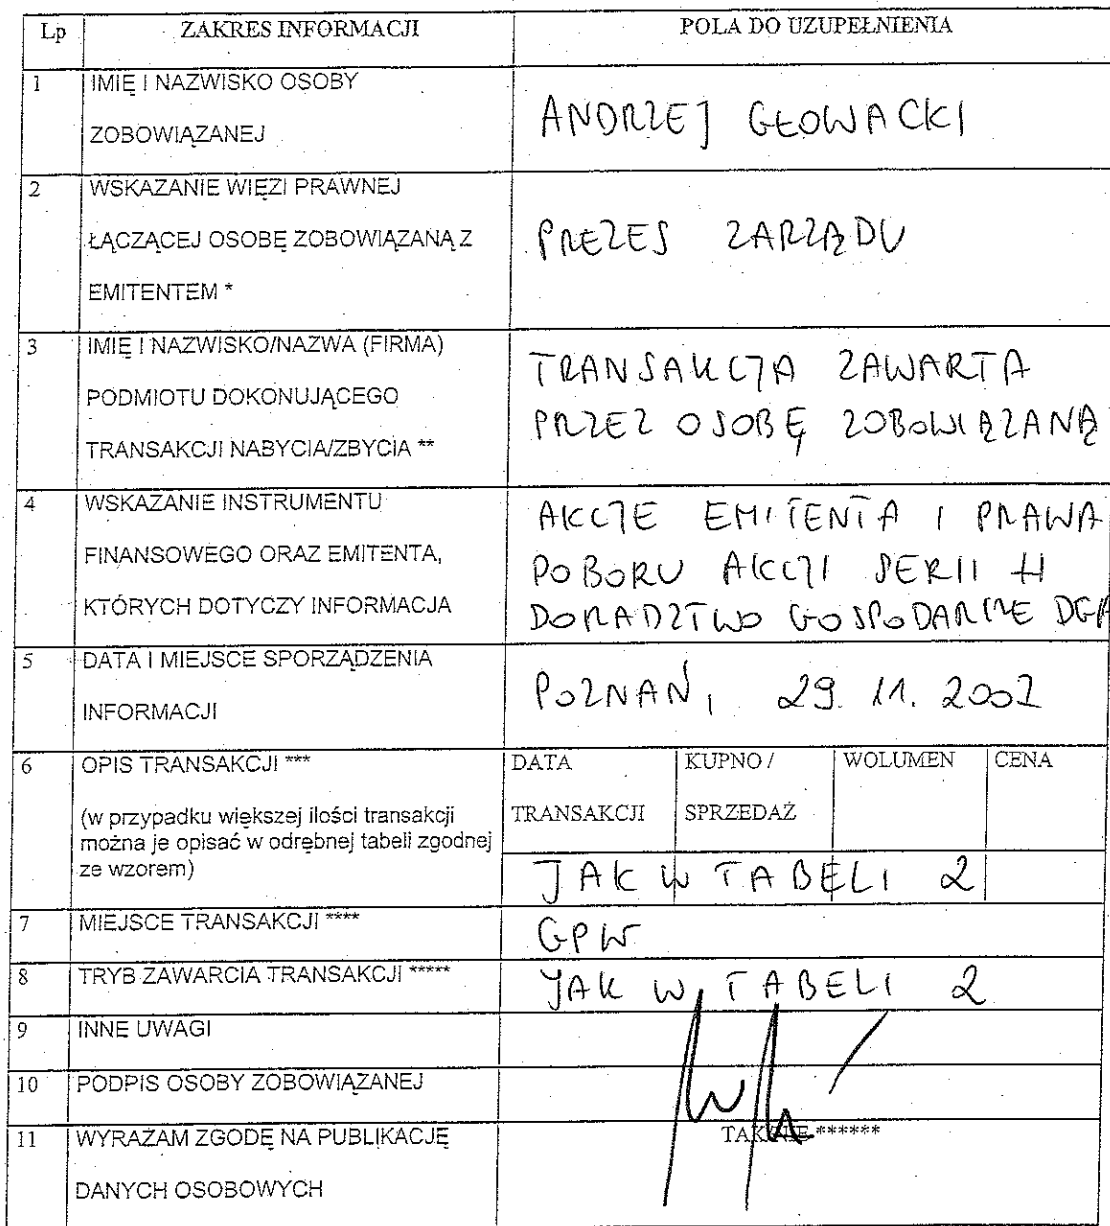 Lp ZAKRES INFORMACJI POLA DO UZUPEŁNIENIA
1 IMIĘ I NAZWISKO OSOBY
ZOBOWIĄZANEJ
ANDRZEJ GŁOWACKI
2 WSKAZANIE WIĘZI PRAWNEJ
ŁĄCZĄCEJ OSOBĘ ZOBOWIĄZANĄ Z
EMITENTEM *
PREZES ZARZĄDU
3 IMIĘ I NAZWISKO/NAZWA (FIRMA)
PODMIOTU DOKONUJĄCEGO
TRANSAKCJI NABYCIA/ZBYCIA **
TRANSAKCJA ZAWARTA
PRZEZ OSOBĘ ZOBOWIĄZANĄ
4 WSKAZANIE INSTRUMENTU
FINANSOWEGO ORAZ EMITENTA,
KTÓRYCH DOTYCZY INFORMACJA
AKCJE EMITENTA I PRAWA
POBORU AKCJI SERII H
DORADZTWO GOSPODARCZE DGA
5 DATA I MIEJSCE SPORZĄDZENIA
INFORMACJI
POZNAŃ, 29. 11. 2007
6 OPIS TRANSAKCJI ***
(w przypadku większej ilości transakcji
można je opisać w odrębnej tabeli zgodnej
ze wzorem)
DATA KUPNO / WOLUMEN CENA
TRANSAKCJI SPRZEDAŻ
JAK W TABELI 2
7 MIEJSCE TRANSAKCJI ****
GPW
8 TRYB ZAWARCIA TRANSAKCJI *****
JAK W TABELI 2
9 INNE UWAGI
10 PODPIS OSOBY ZOBOWIĄZANEJ
11 WYRAŻAM ZGODĘ NA PUBLIKACJĘ
DANYCH OSOBOWYCH
TAK/NIE ******